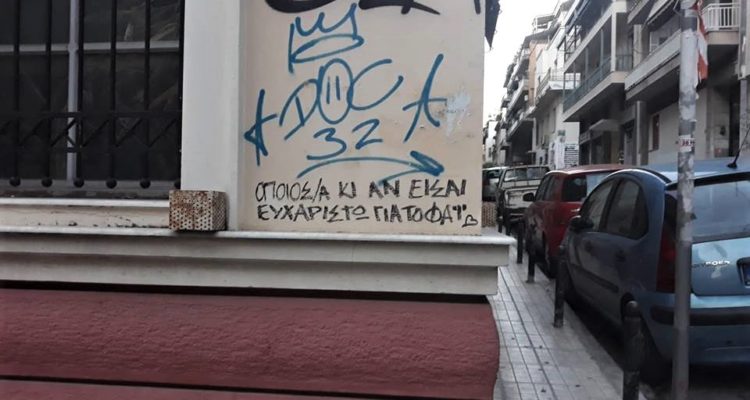 DOC
32
ΟΠΟΙΟΣ/Α ΚΙ ΑΝ ΕΙΣΑΙ
ΕΥΧΑΡΙΣΤΩ ΓΙΑ ΤΟ ΦΑΪ